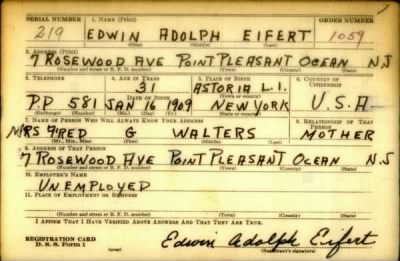 SERIAL NUMBER 1. NAME (Print) ORDER NUMBER
219 EDWIN ADOLPH EIFERT 1059
(First) (Middle) (Last)
2. ADDRESS (Print)
7 ROSEWOOD AVE POINT PLEASANT OCEAN N.J
(Number and street or R. F. D. number) (Town) (County) (State)
3. TELEPHONE 4. AGE IN YEARS 5. PLACE OF BIRTH 6. COUNTRY OF CITIZENSHIP
31 ASTORIA L.I.
DATE OF BIRTH (Town or county)
P.P 581 JAN 16 1909 NEW YORK U.S.A.
(Exchange) (Number) (Mo.) (Day) (Yr.) (State or country)
7. NAME OF PERSON WHO WILL ALWAYS KNOW YOUR ADDRESS 8. RELATIONSHIP OF THAT PERSON
MRS FRED G WALTERS MOTHER
(Mr., Mrs., Miss) (First) (Middle) (Last)
9. ADDRESS OF THAT PERSON
7 ROSEWOOD AVE POINT PLEASANT OCEAN N.J
(Number and street or R. F. D. number) (Town) (County) (State)
10. EMPLOYER'S NAME
UNEMPLOYED
11. PLACE OF EMPLOYMENT OR BUSINESS
(Number and street or R. F. D. number) (Town) (County) (State)
I AFFIRM THAT I HAVE VERIFIED ABOVE ANSWERS AND THAT THEY ARE TRUE.
REGISTRATION CARD
D. S. S. Form 1 (over) Edwin Adolph Eifert
(Registrant's signature)